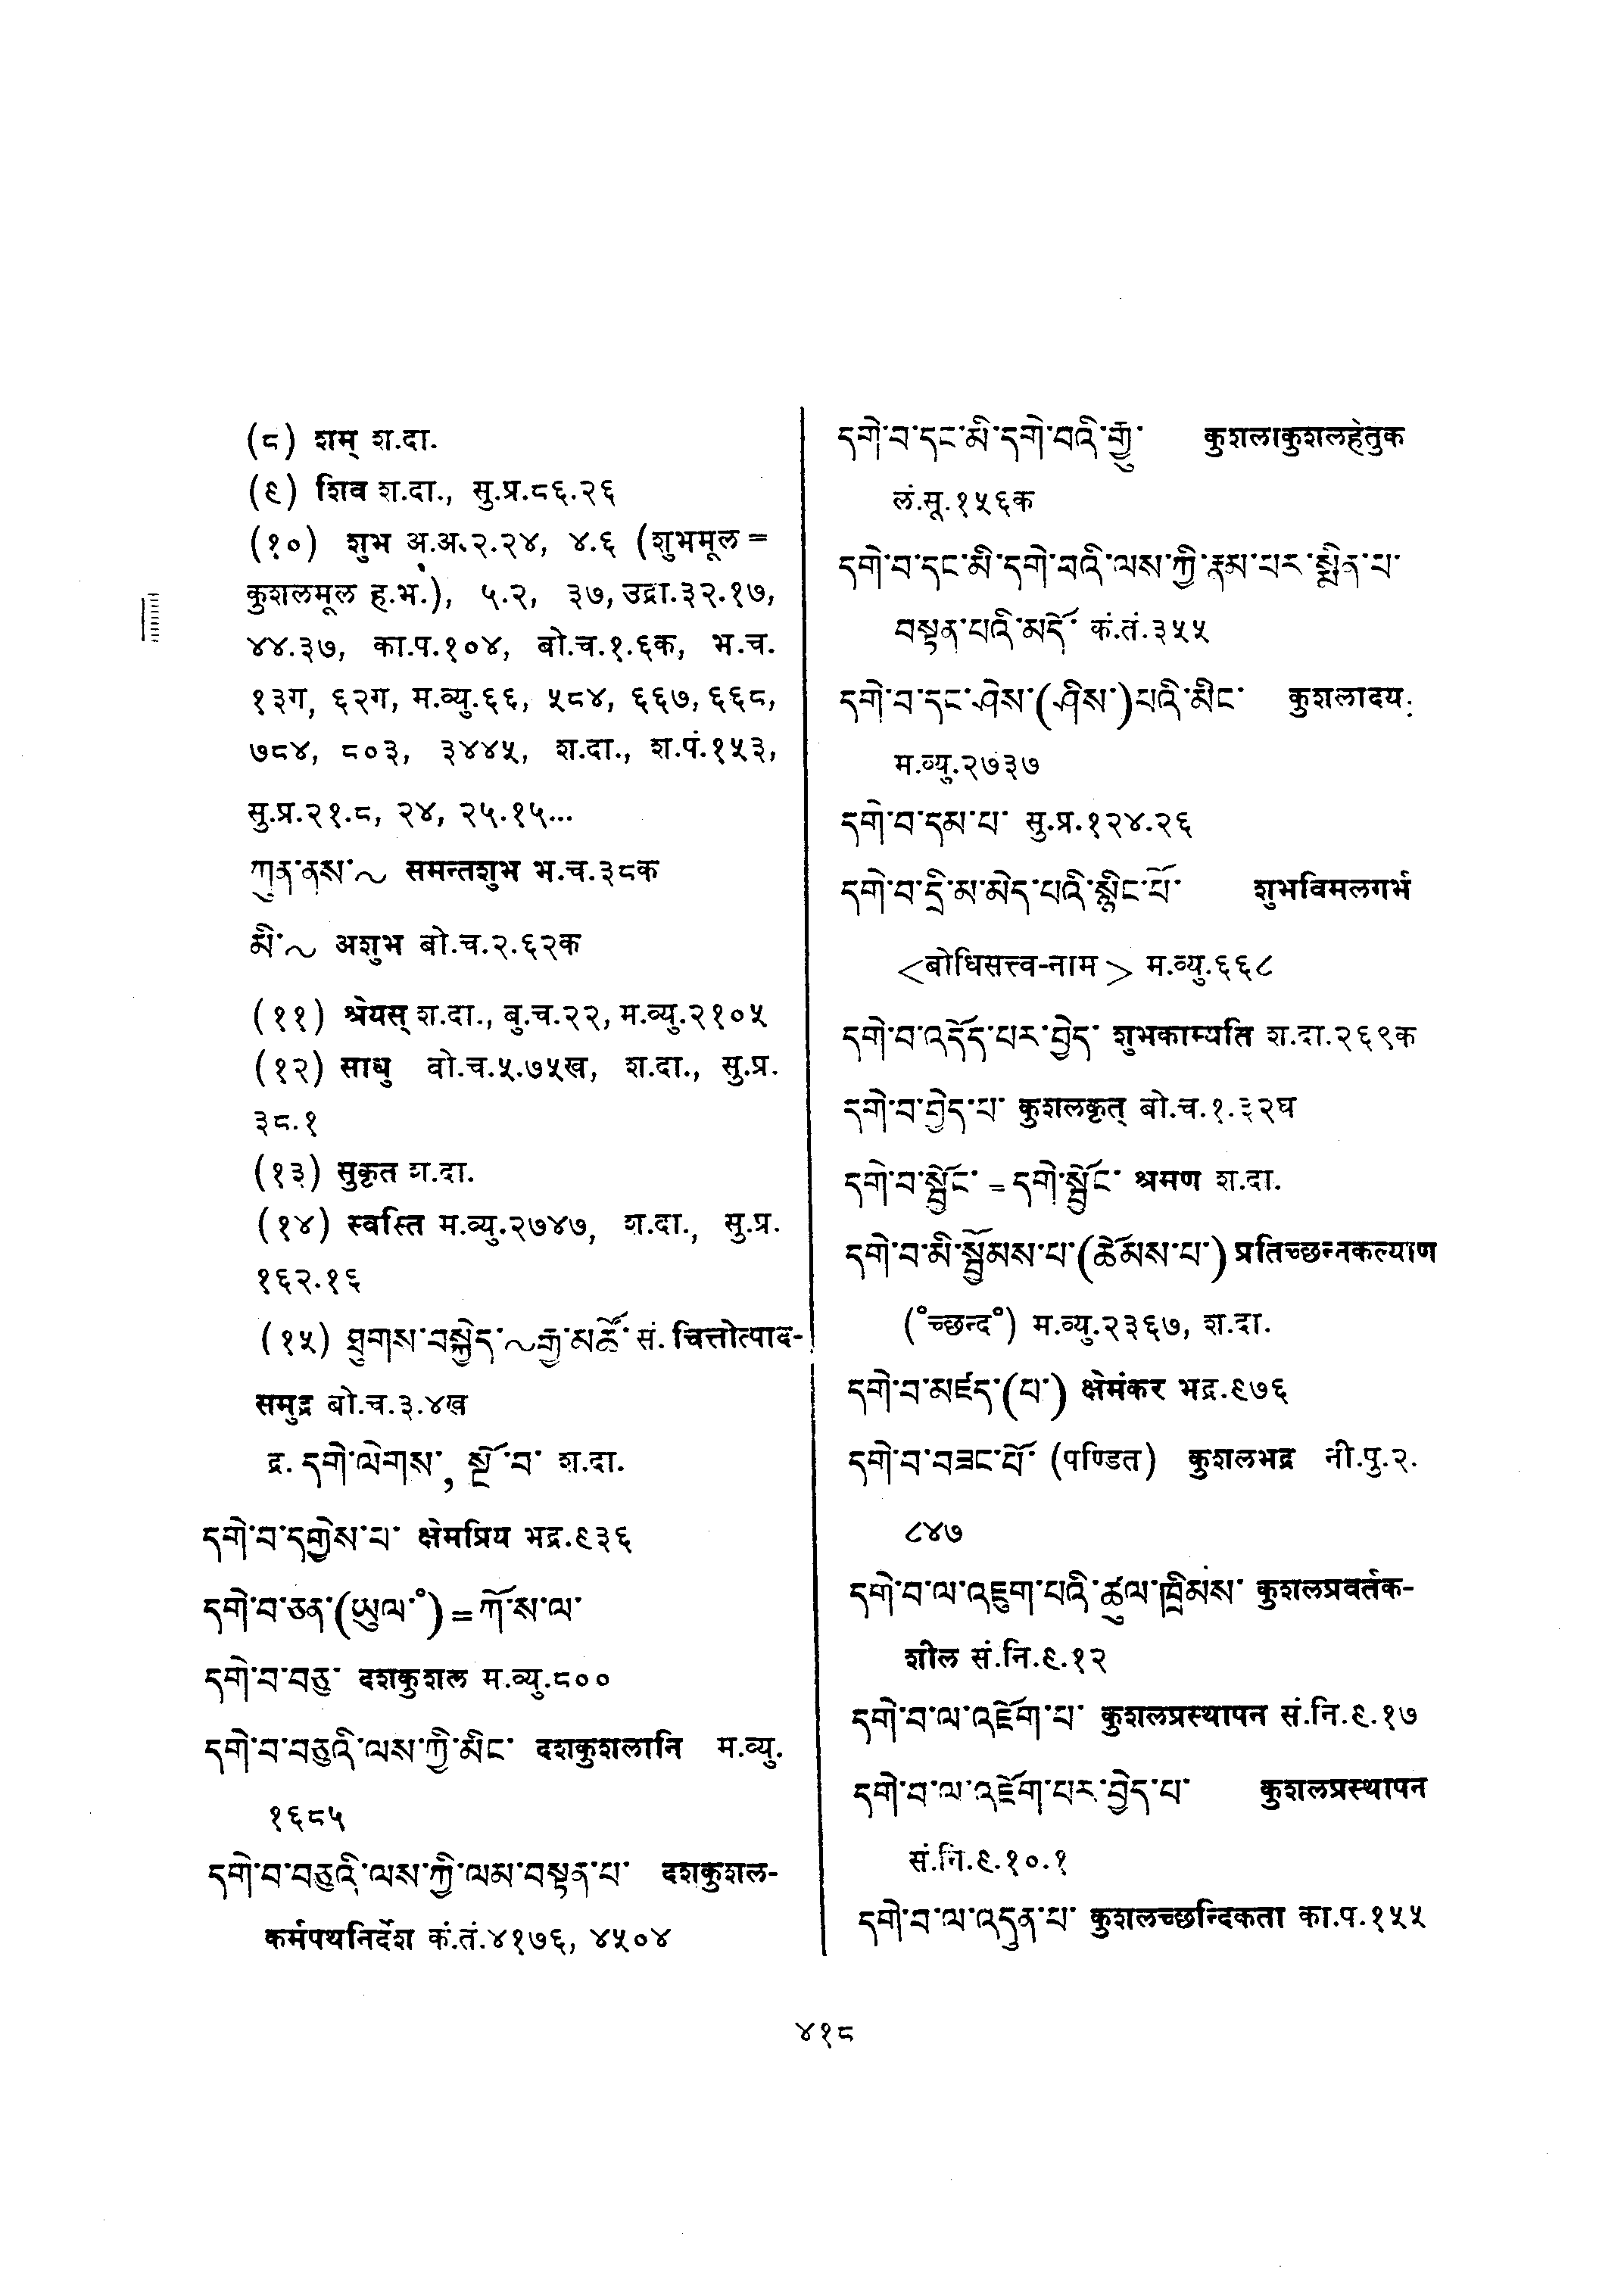 (८) शम् श.दा.
(९) शिव श.दा., सु.प्र.८६.२६
(१०) शुभ अ.अ.२.२४, ४.६ (शुभमूल =
कुशलमूल ह.भ.), ५.२, ३७, उद्रा.३२.१७,
४४.३७, का.प.१०४, बो.च.१.६क, भ.च.
१३ग, ६२ग, म.व्यु.६६, ५८४, ६६७, ६६८,
७८४, ८०३, ३४४५, श.दा., श.पं.१५३,
सु.प्र.२१.८, २४, २५.१५...
ཀུན་ནས་~ समन्तशुभ भ.च.३८क
མི་~ अशुभ बो.च.२.६२क
(११) श्रेयस् श.दा., बु.च.२२, म.व्यु.२१०५
(१२) साधु वो.च.५.७५ख, श.दा., सु.प्र.
३८.१
(१३) सुकृत श.दा.
(१४) स्वस्ति म.व्यु.२७४७, श.दा., सु.प्र.
१६२.१६
(१५) ཐུགས་བསྐྱེད་~རྒྱ་མཚོ་ सं. चित्तोत्पाद-
समुद्र बो.च.३.४ख
द्र. དགེ་ལེགས་, སྔོ་བ་ श.दा.
དགེ་བ་དགྱེས་པ་ क्षेमप्रिय भद्र.९३६
དགེ་བ་ཅན་(ཡུལ་°) = ཀོ་ས་ལ་
དགེ་བ་བཅུ་ दशकुशल म.व्यु.८००
དགེ་བ་བཅུའི་ལས་ཀྱི་མིང་ दशकुशलानि म.व्यु.
१६८५
དགེ་བ་བཅུའི་ལས་ཀྱི་ལམ་བསྟན་པ་ दशकुशल-
कर्मपथनिर्देश कं.तं.४१७६, ४५०४
དགེ་བ་དང་མི་དགེ་བའི་རྒྱུ་ कुशलाकुशलहेतुक
लं.सू.१५६क
དགེ་བ་དང་མི་དགེ་བའི་ལས་ཀྱི་རྣམ་པར་སྨིན་པ་
བསྟན་པའི་མདོ་ कं.तं.३५५
དགེ་བ་དང་ཤེས་(ཤིས་)པའི་མིང་ कुशलादय:
म.व्यु.२७३७
དགེ་བ་དམ་པ་ सु.प्र.१२४.२६
དགེ་བ་དྲི་མ་མེད་པའི་སྙིང་པོ་ शुभविमलगर्भ
<बोधिसत्त्व-नाम> म.व्यु.६६८
དགེ་བ་འདོད་པར་བྱེད་ शुभकाम्यति श.दा.२६९क
དགེ་བ་བྱེད་པ་ कुशलकृत् बो.च.१.३२घ
དགེ་བ་སྦྱོང་ = དགེ་སྦྱོང་ श्रमण श.दा.
དགེ་བ་མི་སྦྱོམས་པ་(ཚོམས་པ་) प्रतिच्छन्नकल्याण
(°च्छन्द°) म.व्यु.२३६७, श.दा.
དགེ་བ་མཛད་(པ་) क्षेमंकर भद्र.९७६
དགེ་བ་བཟང་པོ་ (पण्डित) कुशलभद्र नी.पु.२.
८४७
དགེ་བ་ལ་འཇུག་པའི་ཚུལ་ཁྲིམས་ कुशलप्रवर्तक-
शील सं.नि.९.१२
དགེ་བ་ལ་འཇོག་པ་ कुशलप्रस्थापन सं.नि.९.१७
དགེ་བ་ལ་འཇོག་པར་བྱེད་པ་ कुशलप्रस्थापन
सं.नि.९.१०.१
དགེ་བ་ལ་འདུན་པ་ कुशलच्छन्दिकता का.प.१५५
४१८